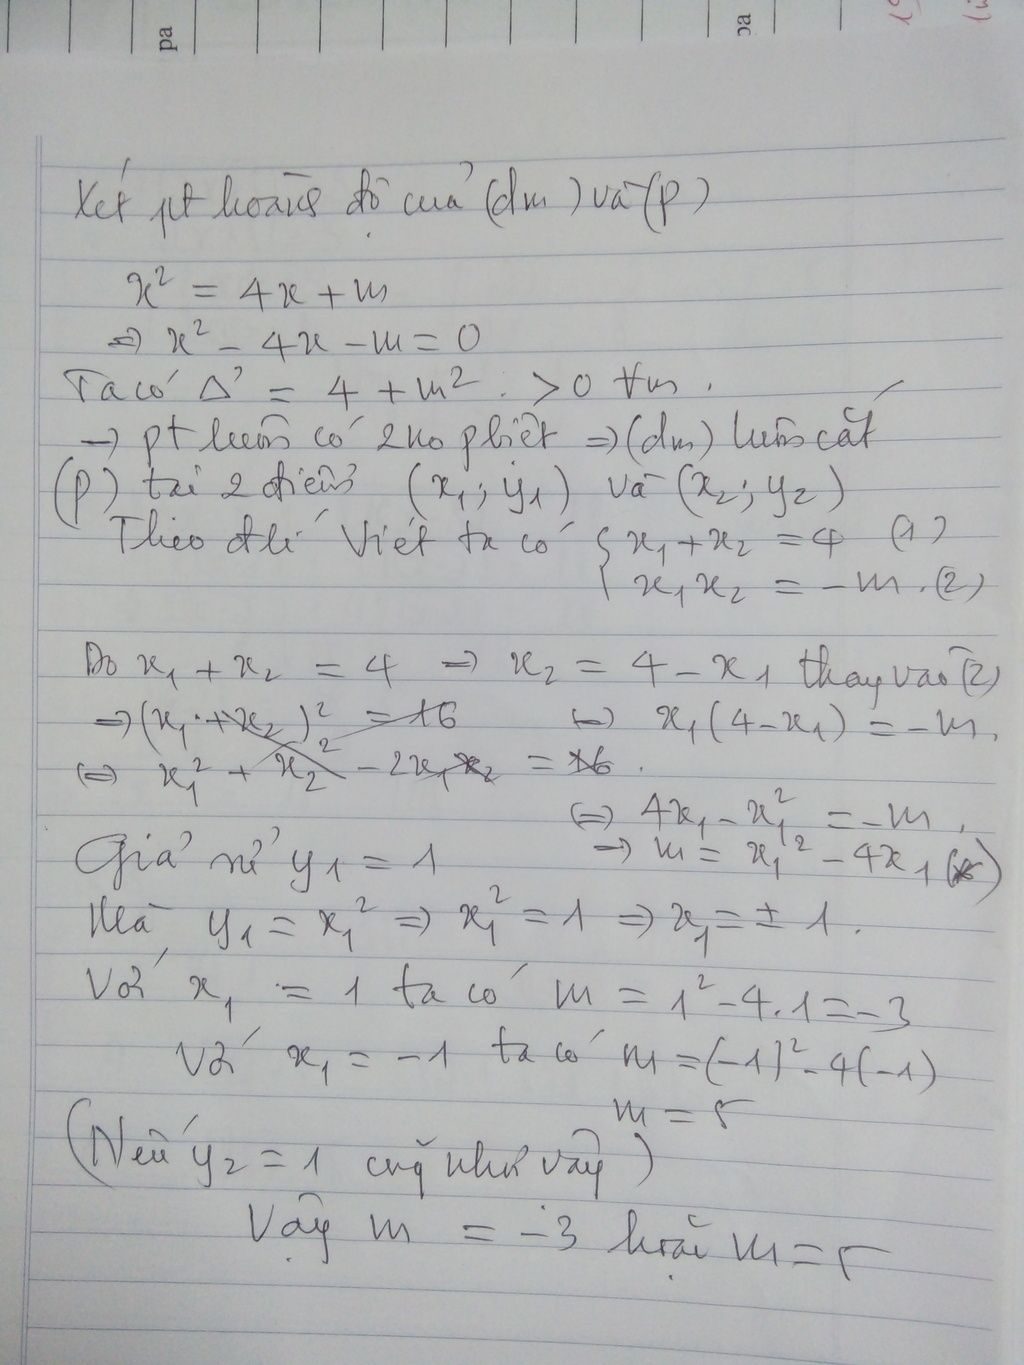 pa
pa
Xét pt hoành độ của (dm) và (p)
x² = 4x + m
⇒ x² - 4x - m = 0
Ta có Δ' = 4 + m² . > 0 ∀m .
→ pt luôn có 2 no pbiệt ⇒ (dm) luôn cắt
(p) tại 2 điểm (x₁; y₁) và (x₂; y₂)
Theo đlí Viét ta có { x₁ + x₂ = 4 (1)
x₁x₂ = -m . (2)
Do x₁ + x₂ = 4 ⇒ x₂ = 4 - x₁ thay vào (2)
⇒ (x₁ + x₂)² = 16 ⇔ x₁(4 - x₁) = -m .
⇔ x₁² + x₂² - 2x₁x₂ = 16 .
⇔ 4x₁ - x₁² = -m .
Giả sử y₁ = 1 → m = x₁² - 4x₁ (*)
Mà y₁ = x₁² ⇒ x₁² = 1 ⇒ x₁ = ± 1 .
Với x₁ = 1 ta có m = 1² - 4.1 = -3
Với x₁ = -1 ta có m = (-1)² - 4(-1)
m = 5
(Nếu y₂ = 1 cũg như vậy)
Vậy m = -3 hoặc m = 5